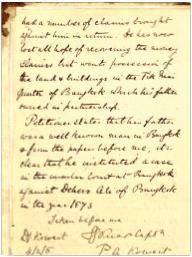 had a number of claims brought
against him in return. He has now
lost all hope of recovering the money
claims but wants possession of
the land & buildings in the
quarter of Bangkok which his father
owned in partnership.
Petitioner states that his father
was a well known man in Bangkok
& from the papers before me, it is
clear that he instituted a case
in the Court at Bangkok
against Ali of Bangkok
in the year 1893
Taken before me
Kuwait
P. A. Kuwait